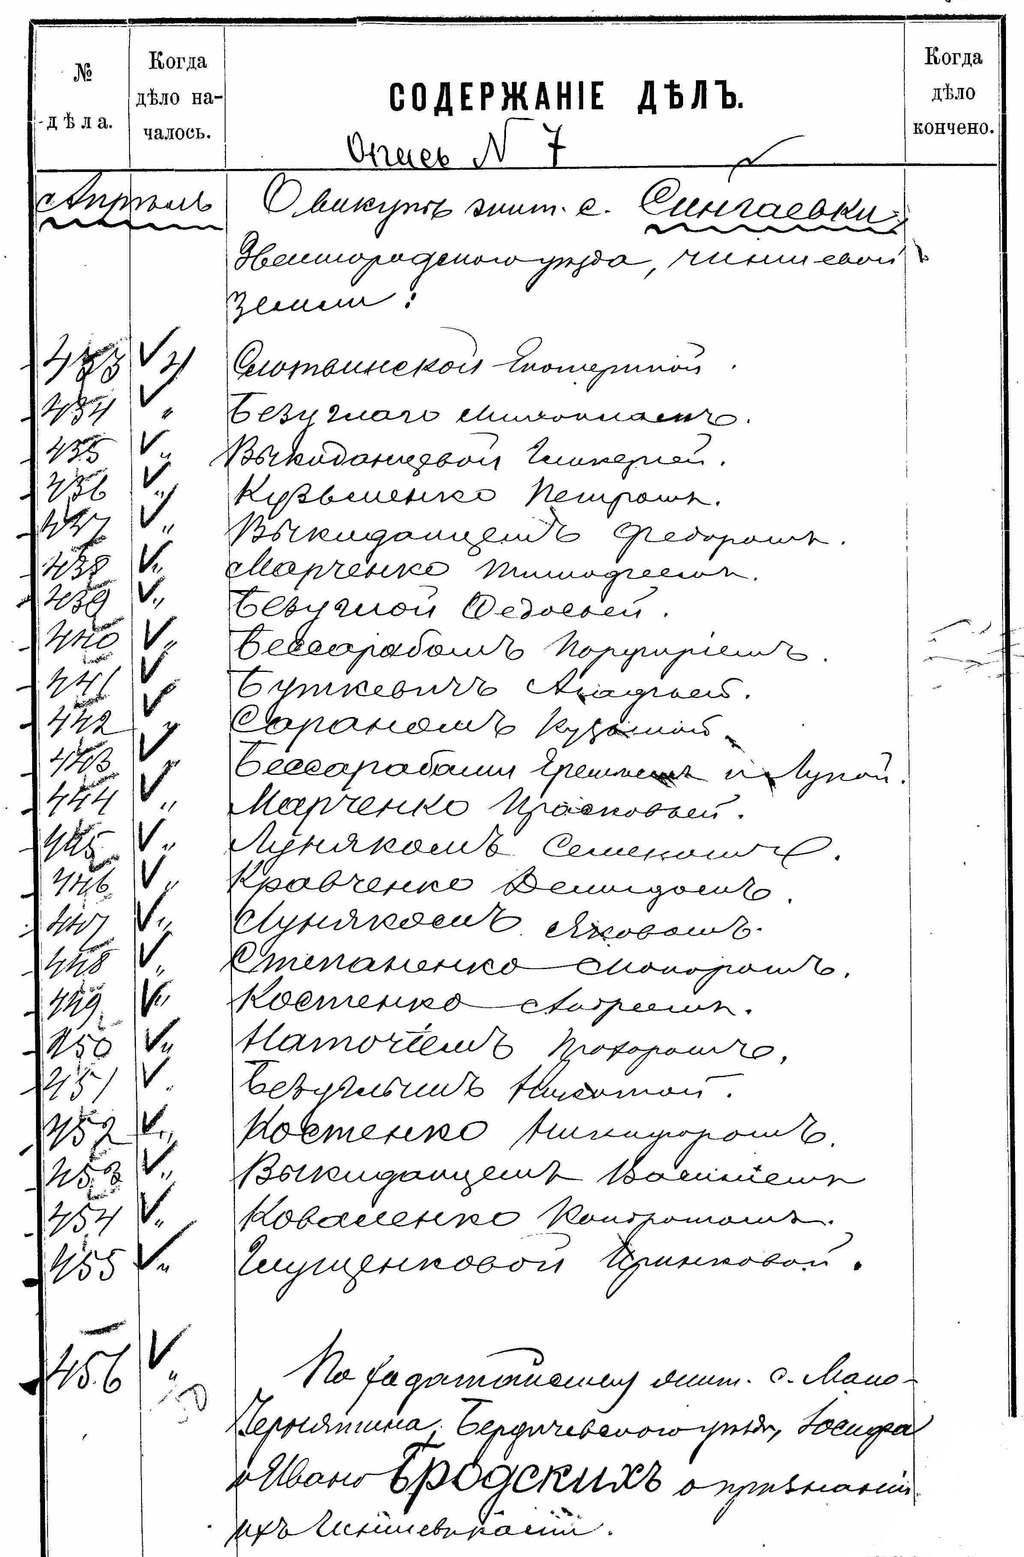 № дѣла.
Когда дѣло началось.
СОДЕРЖАНІЕ ДѢЛЪ.
Когда дѣло кончено.
Опись № 7
Апрѣль О выкупѣ жит. с. Сингаевки,
Звенигородскаго уѣзда, чиншевой
земли:
433 4 Слотвинской Екатериной.
434 " Безуглаго
435 " Выкиданцевой Гликеріей.
436 " Кузьменко Петромъ.
437 " Выкиданцемъ Федоромъ.
438 " Марченко Тимофеемъ.
439 " Безуглой Федосьей.
440 " Бессарабомъ Порфиріемъ.
441 " Буткевичъ Агафьей.
442 " Сараномъ Кузьмой.
443 " Бессарабами и Лукой.
444 " Марченко Прасковьей.
445 " Лунякомъ Семеномъ.
446 " Кравченко Демидомъ.
447 " Лунякомъ Яковомъ.
448 " Степаненко
449 " Костенко Андреемъ.
450 " Наточіемъ Прохоромъ.
451 " Безуглымъ Никитой.
452 " Костенко Никифоромъ.
453 " Выкиданцемъ Василіемъ
454 " Коваленко Кондратомъ.
455 " Глущенковой
456 " По ходатайству жит. с. Мало-
Чернятина, Бердичевскаго уѣзда, Іосифа
и Ивана Бродскихъ о признаніи
ихъ чиншевиками.